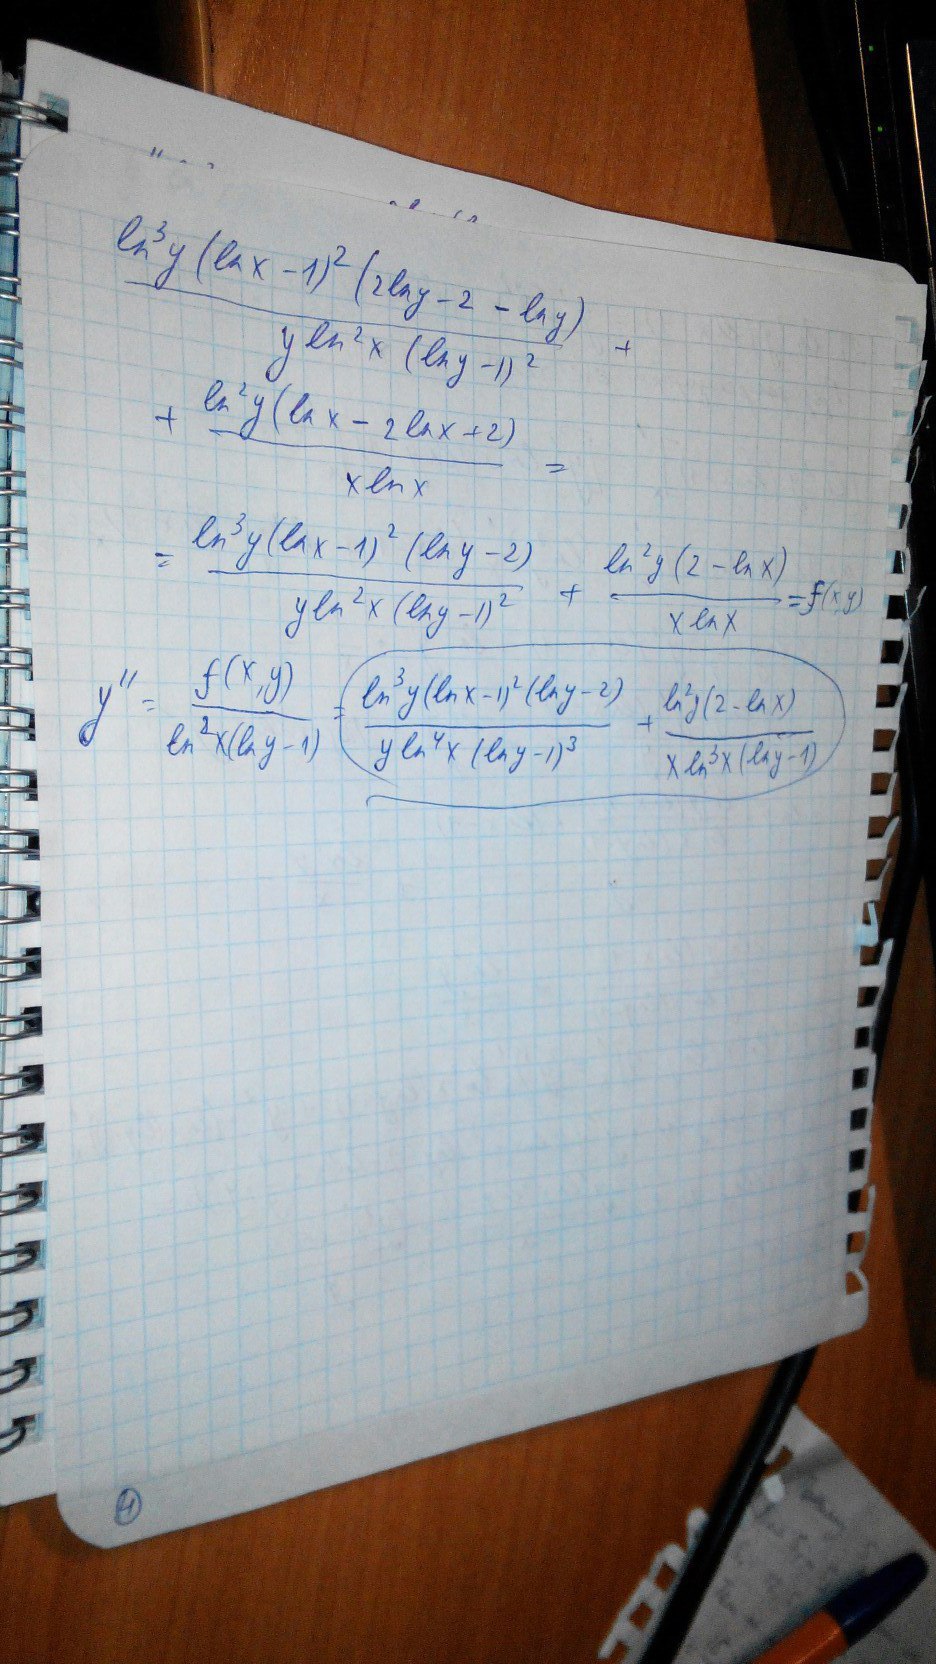 ln³y(lnx-1)²(2lny-2-lny) / yln²x(lny-1)² +
+ ln²y(lnx-2lnx+2) / xlnx =
= ln³y(lnx-1)²(lny-2) / yln²x(lny-1)² + ln²y(2-lnx) / xlnx = f(x,y)
y'' = f(x,y) / ln²x(lny-1) = ln³y(lnx-1)²(lny-2) / yln⁴x(lny-1)³ + ln²y(2-lnx) / xln³x(lny-1)